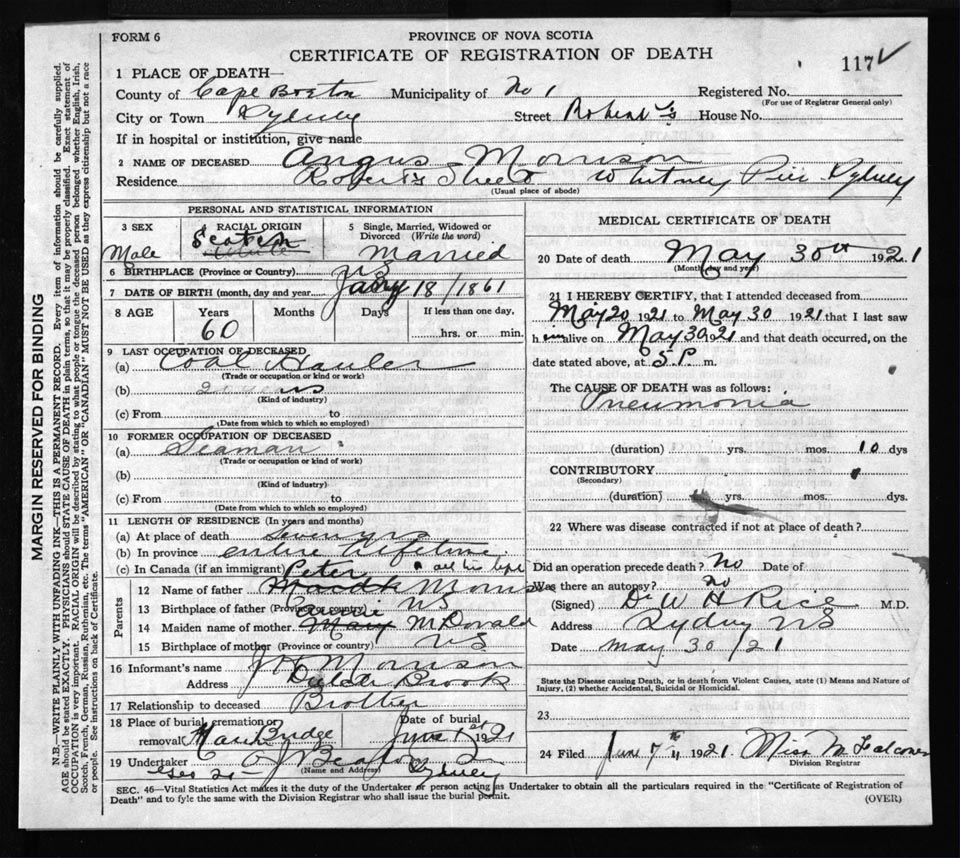 FORM 6
PROVINCE OF NOVA SCOTIA
CERTIFICATE OF REGISTRATION OF DEATH
117
1 PLACE OF DEATH—
County of Cape Breton Municipality of No 1 Registered No.
(For use of Registrar General only)
City or Town Sydney Street Robert's House No.
If in hospital or institution, give name
2 NAME OF DECEASED Angus Morrison
Residence Robert's Street Whitney Pier Sydney
(Usual place of abode)
PERSONAL AND STATISTICAL INFORMATION
3 SEX
Male
4 RACIAL ORIGIN
Scotch
White
5 Single, Married, Widowed or Divorced (Write the word)
Married
6 BIRTHPLACE (Province or Country) NS
7 DATE OF BIRTH (month, day and year) 18/1861
8 AGE Years Months Days If less than one day,
60 hrs. or min.
9 LAST OCCUPATION OF DECEASED
(a) Coal
(Trade or occupation or kind of work)
(b) years
(Kind of industry)
(c) From to
(Date from which to which so employed)
10 FORMER OCCUPATION OF DECEASED
(a) Seaman
(Trade or occupation or kind of work)
(b)
(Kind of industry)
(c) From to
(Date from which to which so employed)
11 LENGTH OF RESIDENCE (In years and months)
(a) At place of death Seven yrs
(b) In province entire lifetime
(c) In Canada (if an immigrant) all his life
Parents
12 Name of father Peter Morrison
13 Birthplace of father (Province or country) NS
14 Maiden name of mother Mary McDonald
15 Birthplace of mother (Province or country) NS
16 Informant's name Morrison
Address Dutch Brook
17 Relationship to deceased Brother
18 Place of burial, cremation or removal Marion Bridge
Date of burial June 1st 1921
19 Undertaker A J Beaton
(Name and Address) Sydney
MEDICAL CERTIFICATE OF DEATH
20 Date of death May 30th 1921
(Month, day and year)
21 I HEREBY CERTIFY, that I attended deceased from
May 20 1921 to May 30 1921 that I last saw
him alive on May 30 1921 and that death occurred, on the
date stated above, at 5 P m.
The CAUSE OF DEATH was as follows:
Pneumonia
(duration) yrs. mos. 10 dys
CONTRIBUTORY
(Secondary)
(duration) yrs. mos. dys.
22 Where was disease contracted if not at place of death?
Did an operation precede death? No Date of
Was there an autopsy? No
(Signed) Dr W H Rice M.D.
Address Sydney NS
Date May 30/21
State the Disease causing Death, or in death from Violent Causes, state (1) Means and Nature of
Injury, (2) whether Accidental, Suicidal or Homicidal.
23
24 Filed June 7th 1921. Miss M Falconer
Division Registrar
SEC. 46—Vital Statistics Act makes it the duty of the Undertaker or person acting as Undertaker to obtain all the particulars required in the "Certificate of Registration of
Death" and to fyle the same with the Division Registrar who shall issue the burial permit.
(OVER)
MARGIN RESERVED FOR BINDING
N.B.—WRITE PLAINLY WITH UNFADING INK—THIS IS A PERMANENT RECORD. Every item of information should be carefully supplied.
AGE should be stated EXACTLY. PHYSICIANS should STATE CAUSE OF DEATH in plain terms, so that it may be properly classified. Exact statement of
OCCUPATION is very important. RACIAL ORIGIN will be described by stating to what people or tongue the deceased person belonged whether English, Irish,
Scotch, French, German, Russian, Ruthenian, etc. The terms "AMERICAN" OR "CANADIAN" MUST NOT BE USED as they express citizenship but not a race
or people. See instructions on back of Certificate.